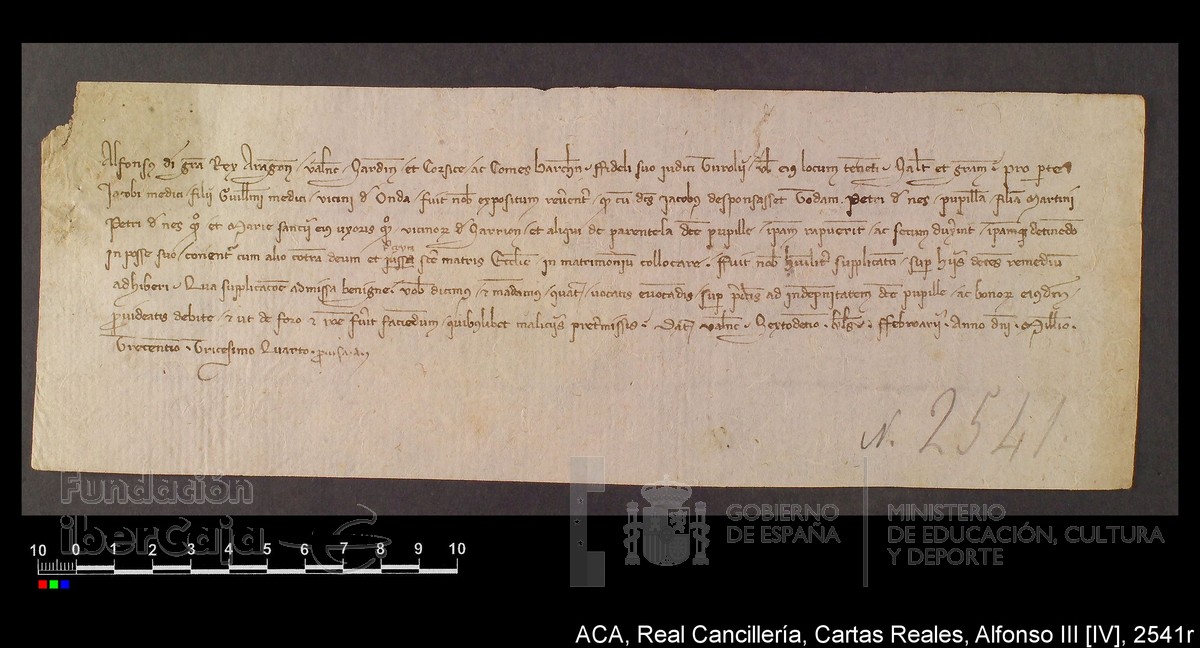 Alfonsus di gra Rex Aragon Valnc Sardin et Corsice ac Comes barchn ffideli suo iudici Turolii vl eius locum tenenti Salt et gram pro parte
Jacobi medici filii Guillmi medici vicini d Onda fuit nob expositum revernt qd cu dcs Jacobus desponsasset Petri d pupilla filia Martini
Petri d qo et Marie sancii eius uxoris qo vicinor d et aliqui de parentela dce pupille ipam rapuerit ac secum duxerint ipamq detinendo
in posse suo conentr cum alio contra deum et iussa sce matris Ecclie in matrimonium collocare ffuit nob humilit supplicatu sup hiis decens remediu
adhiberi Qua supplicacoe admissa benigne vob dicimus et madamus quat vocatis evocadis sup pdcis ad indempnitatem dce pupille ac bonor eiusdem
provideatis debite et ut de foro et roe fuerit faciendum quibuslibet maliciis pretermissis Dat Valnc klds ffebroarii Anno dni Millio
Trecentio Tricesimo Quarto
N. 2541
Fundación
iberCaja
GOBIERNO
DE ESPAÑA
MINISTERIO
DE EDUCACIÓN, CULTURA
Y DEPORTE
10 0 1 2 3 4 5 6 7 8 9 10
ACA, Real Cancillería, Cartas Reales, Alfonso III [IV], 2541r